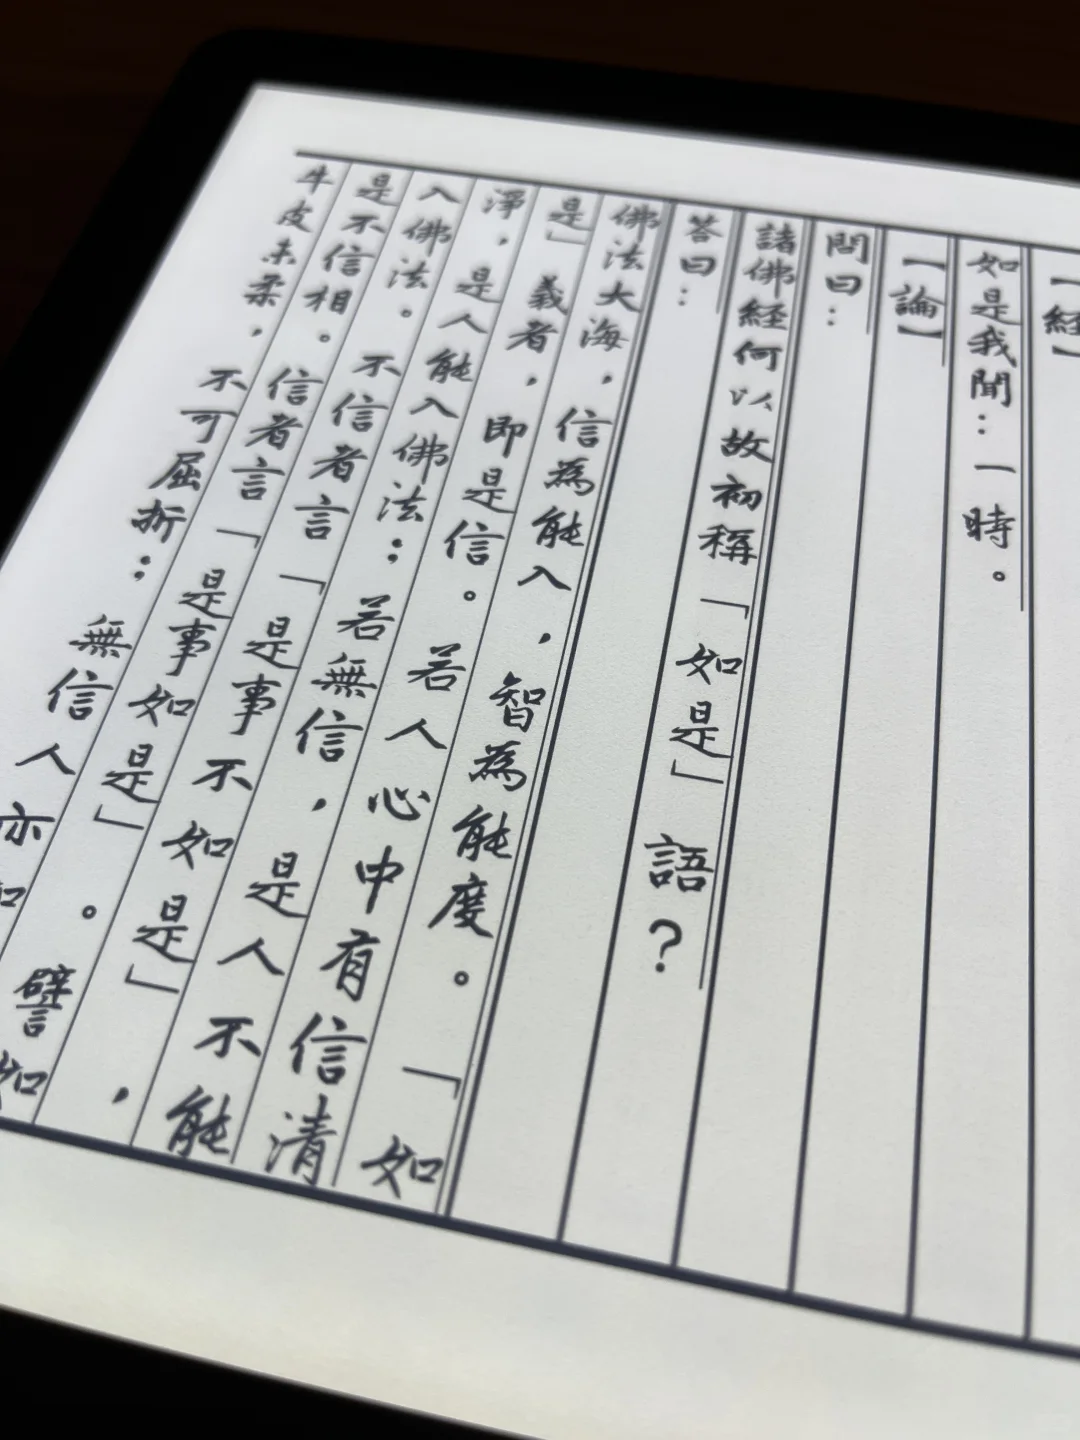 【經】
如是我聞：一時。
【論】
問曰：
諸佛經何以故初稱「如是」語？
答曰：
佛法大海，信為能入，智為能度。「如
是」義者，即是信。若人心中有信清
淨，是人能入佛法；若無信，是人不能
入佛法。不信者言「是事不如是」，
是不信相。信者言「是事如是」。譬如
牛皮未柔，不可屈折：無信人亦如